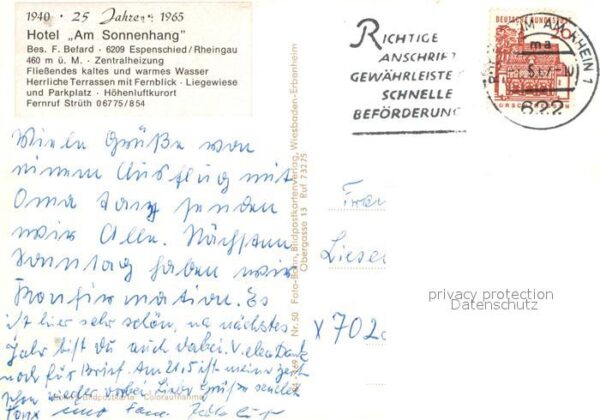 1940 · 25 Jahre · 1965
Hotel „Am Sonnenhang"
Bes. F. Befard · 6209 Espenschied/Rheingau
460 m ü. M. · Zentralheizung
Fließendes kaltes und warmes Wasser
Herrliche Terrassen mit Fernblick · Liegewiese
und Parkplatz · Höhenluftkurort
Fernruf Strüth 06775/854
RICHTIGE
ANSCHRIFT
GEWÄHRLEISTET
SCHNELLE
BEFÖRDERUNG
DEUTSCHE BUNDESPOST
AM RHEIN 1
ma
622
Viele Grüße von
einem Ausflug mit
Oma
senden
wir Alle. Nächsten
Sonntag haben wir
Konfirmation. Es
ist hier sehr schön, na nächstes
Jahr bist du auch dabei. Vielen Dank
noch für Brief. Am 21.5 ist meine Zeit
schon wieder vorbei. Liebe Grüße sendet
und Fam.
Nr. 50 Foto-Born, Bildpostkartenverlag, Wiesbaden-Erbenheim
Obergasse 13 Ruf 73275
Bildpostkarte Coloraufnahme
Frau
Liese
X 702
privacy protection
Datenschutz